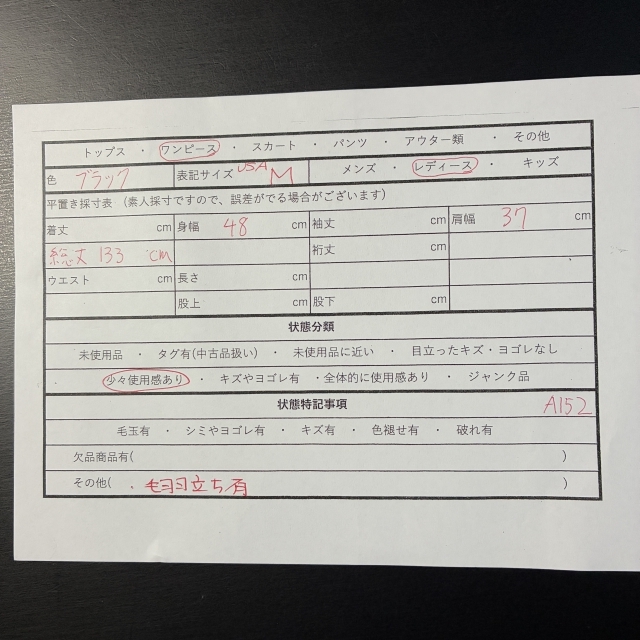 トップス ・ ワンピース ・ スカート ・ パンツ ・ アウター類 ・ その他
色 ブラック 表記サイズ USA M メンズ ・ レディース ・ キッズ
平置き採寸表 (素人採寸ですので、誤差がでる場合がございます)
着丈 cm 身幅 48 cm 袖丈 cm 肩幅 37 cm
総丈 133 cm 裄丈 cm
ウエスト cm 長さ cm
股上 cm 股下 cm
状態分類
未使用品 ・ タグ有(中古品扱い) ・ 未使用品に近い ・ 目立ったキズ・ヨゴレなし
少々使用感あり ・ キズやヨゴレ有 ・全体的に使用感あり ・ ジャンク品
状態特記事項 A152
毛玉有 ・ シミやヨゴレ有 ・ キズ有 ・ 色褪せ有 ・ 破れ有
欠品商品有( )
その他( 毛羽立ち有 )